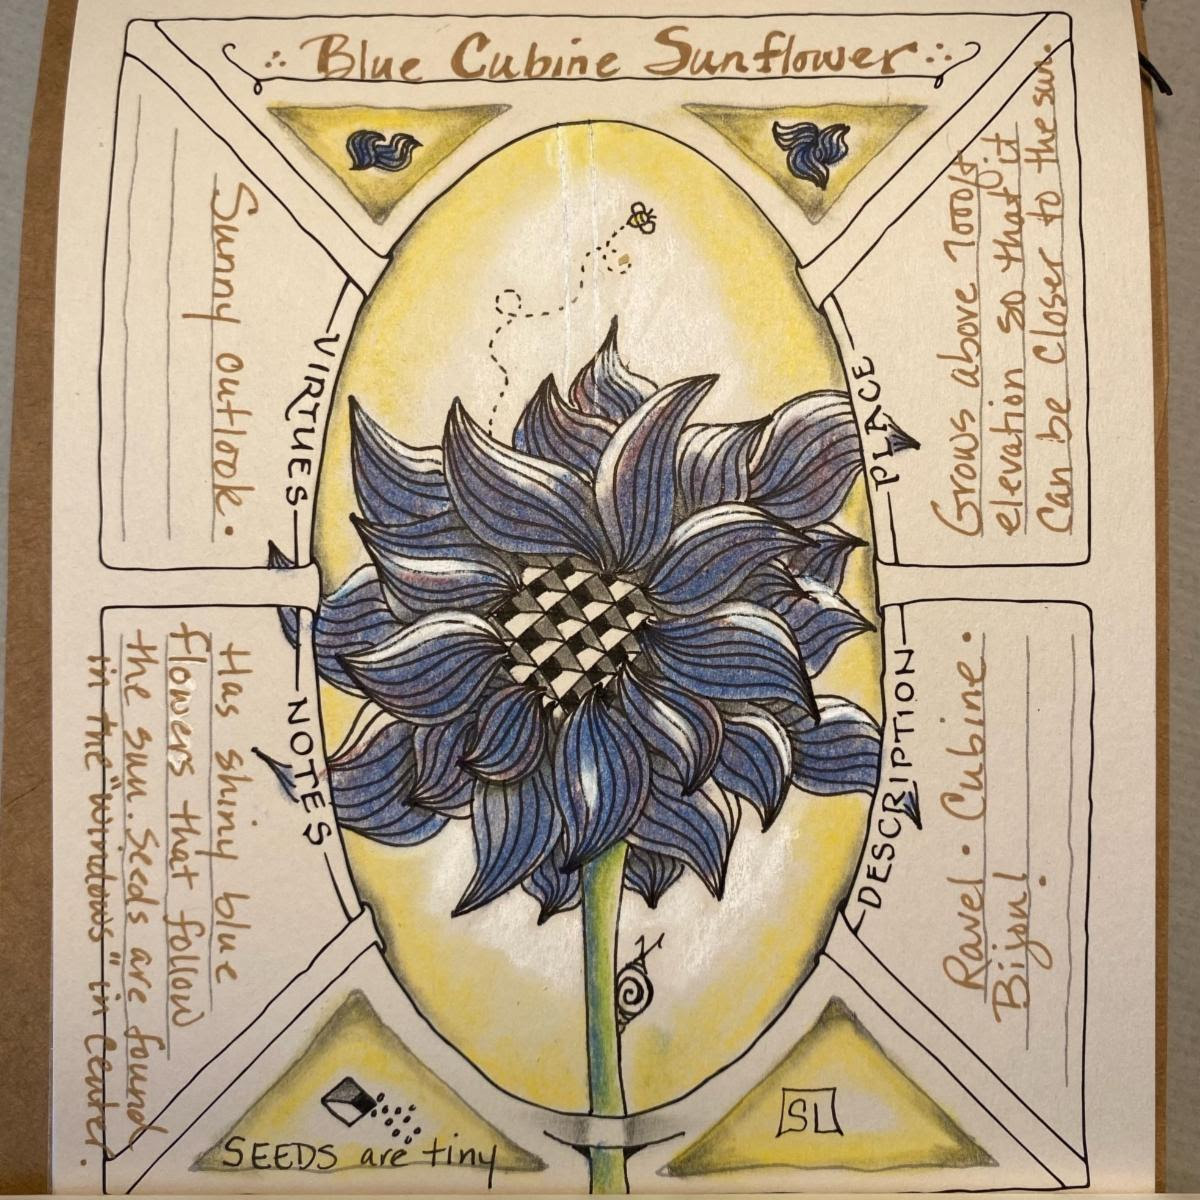 Blue Cubine Sunflower
VIRTUES
Sunny outlook.
PLACE
Grows above 7000ft
elevation so that it
can be closer to the sun.
NOTES
Has shiny blue
flowers that follow
the sun. Seeds are found
in the "windows" in center.
DESCRIPTION
Ravel · Cubine ·
Bijou!
SEEDS are tiny
SL